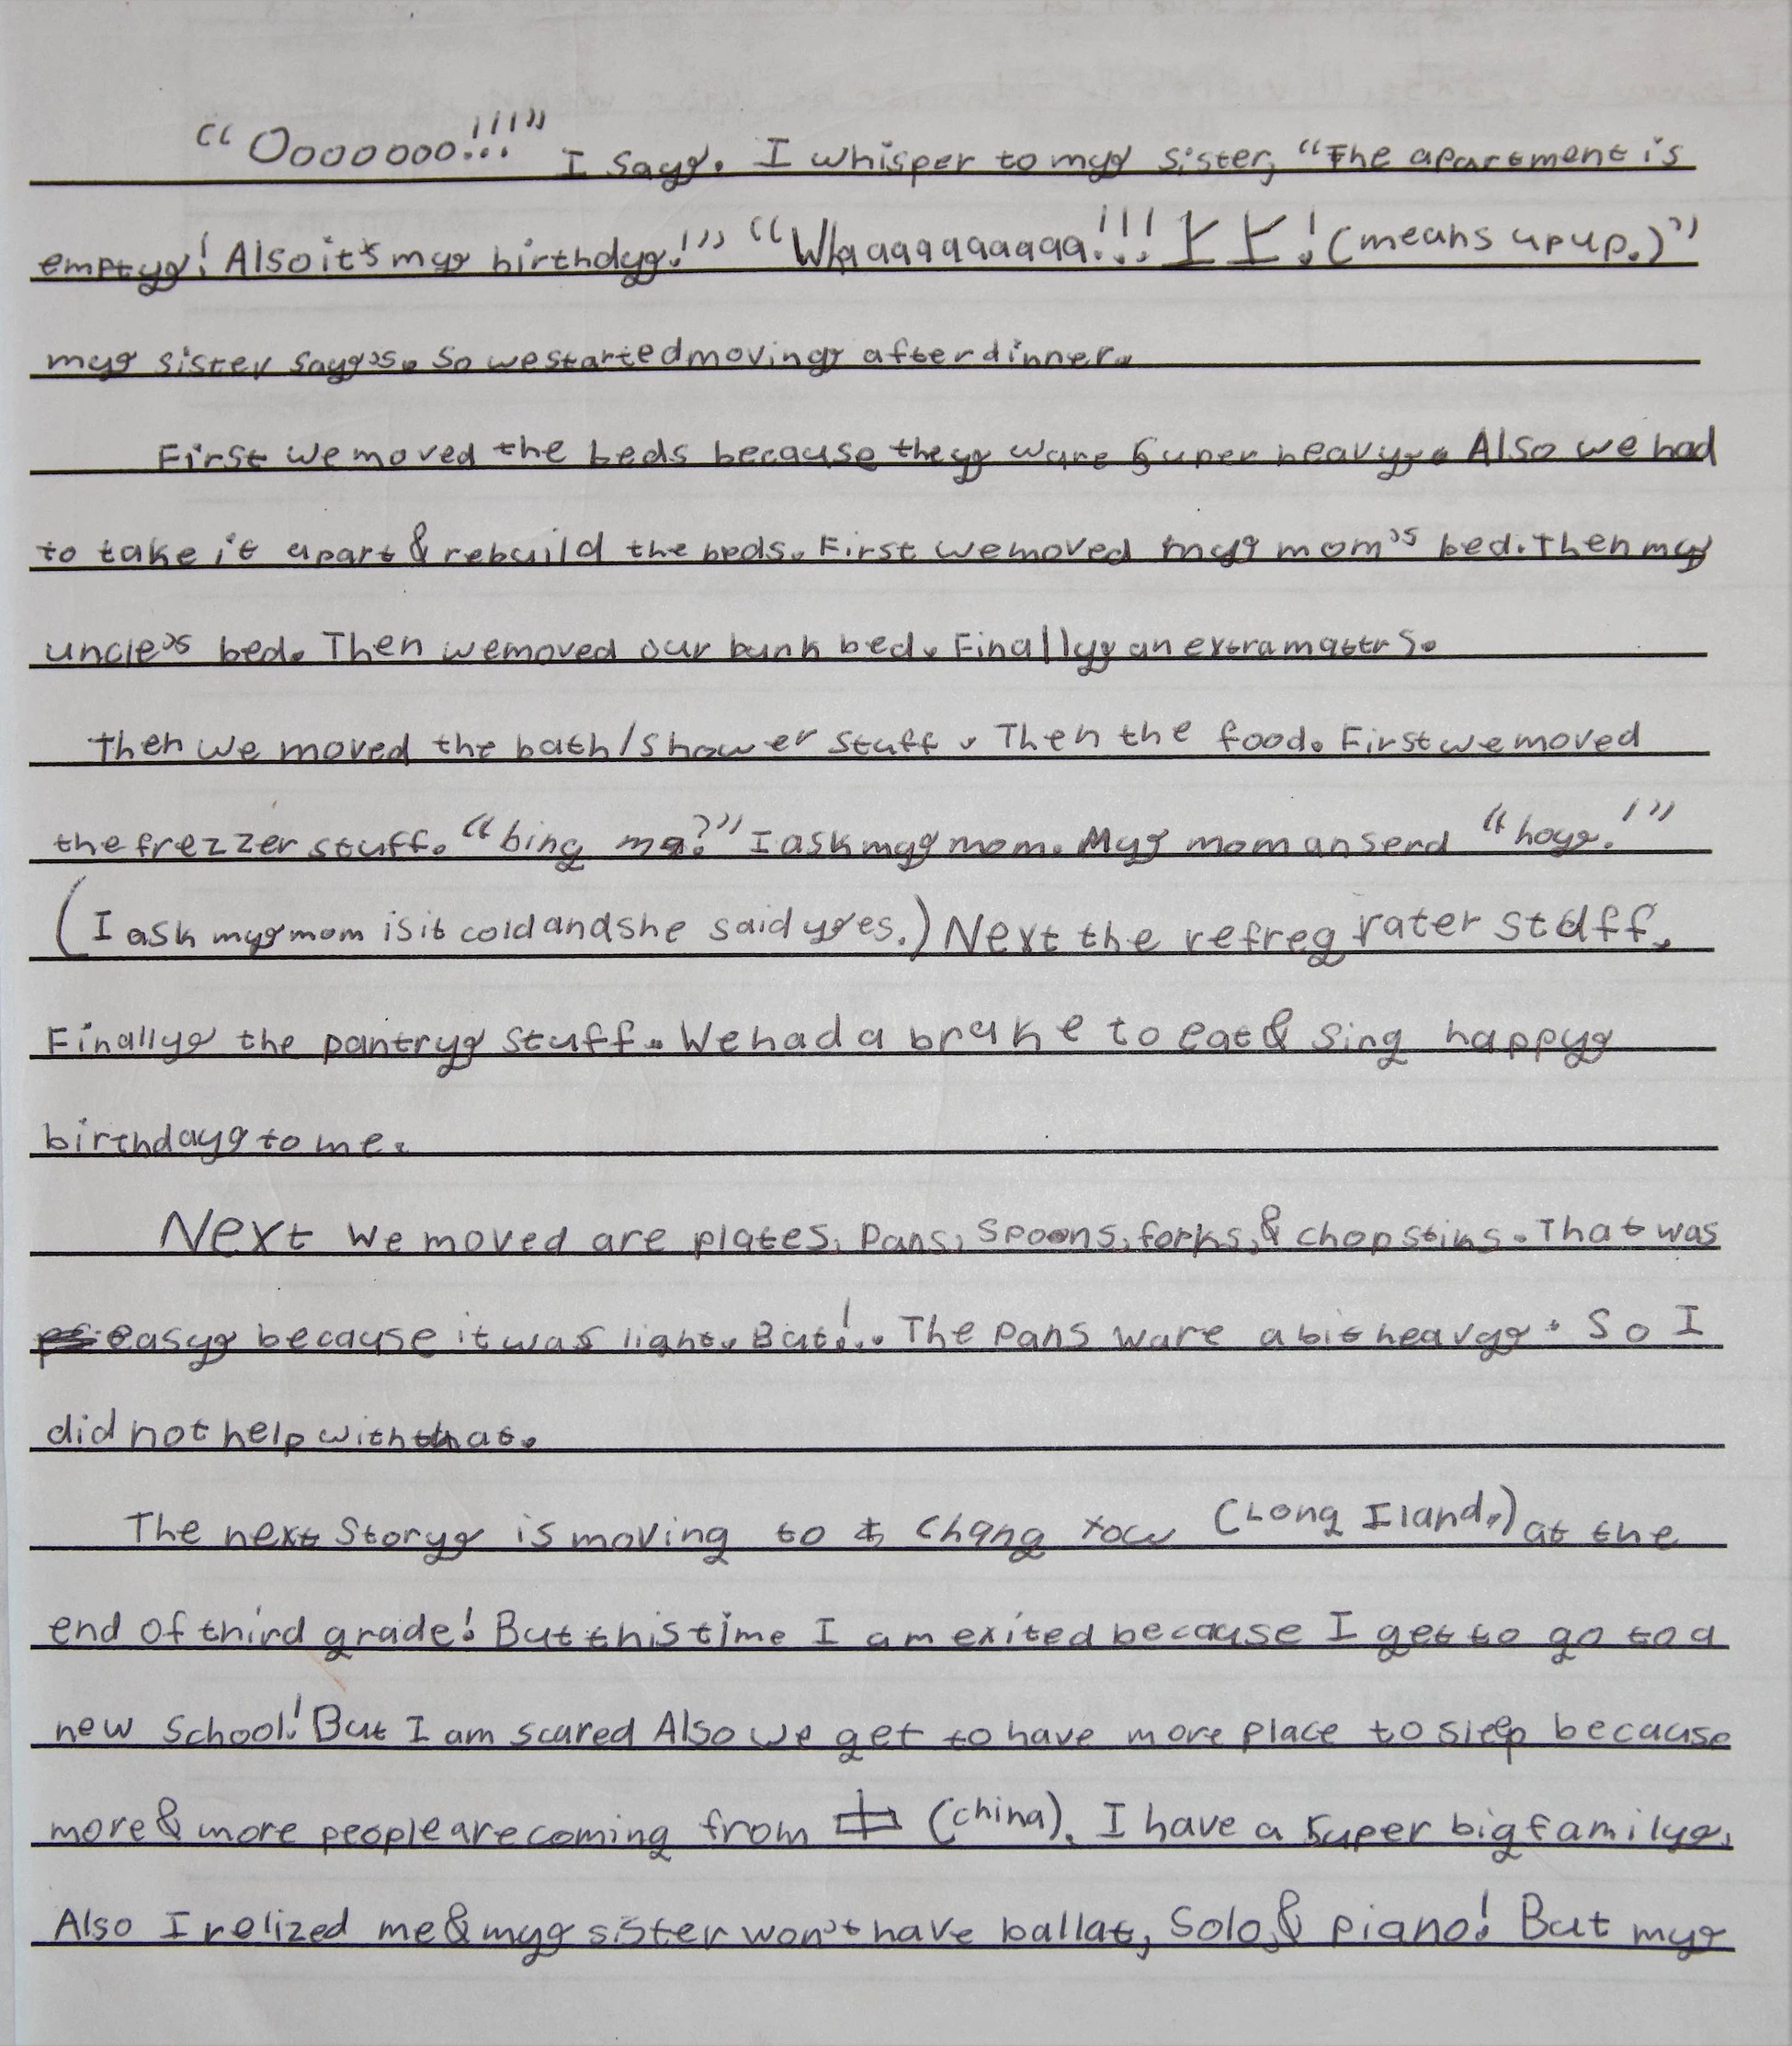 "Ooooooo!!!" I say. I whisper to my sister, "The apartment is
empty! Also it's my birthdy!" "Whaaaaaaaaaa!!! 上上! (means up up.)"
my sister say's. So we started moving after dinner.
First we moved the beds because they ware super heavy. Also we had
to take it apart & rebuild the beds. First we moved my mom's bed. Then my
uncle's bed. Then we moved our bunk bed. Finally an extra mattrs.
Then we moved the bath/shower stuff. Then the food. First we moved
the frezzer stuff. "bing ma?" I ask my mom. My mom anserd "hoy!"
(I ask my mom is it cold and she said yes.) Next the refreg rater stuff.
Finally the pantry stuff. We had a brake to eat & sing happy
birthday to me.
Next we moved are plates, pans, spoons, forks, & chopstiks. That was
easy because it was light. But!.. The pans ware a bit heavy. So I
did not help with that.
The next story is moving to Chang tow (Long Iland.) at the
end of third grade! But this time I am exited because I get to go to a
new school! But I am scared Also we get to have more place to sleep because
more & more people are coming from 中 (china). I have a super big family.
Also I relized me & my sister won't have ballat, Solo, & piano! But my